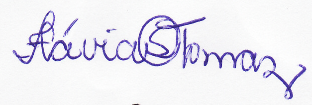 Flávia S Tomaz